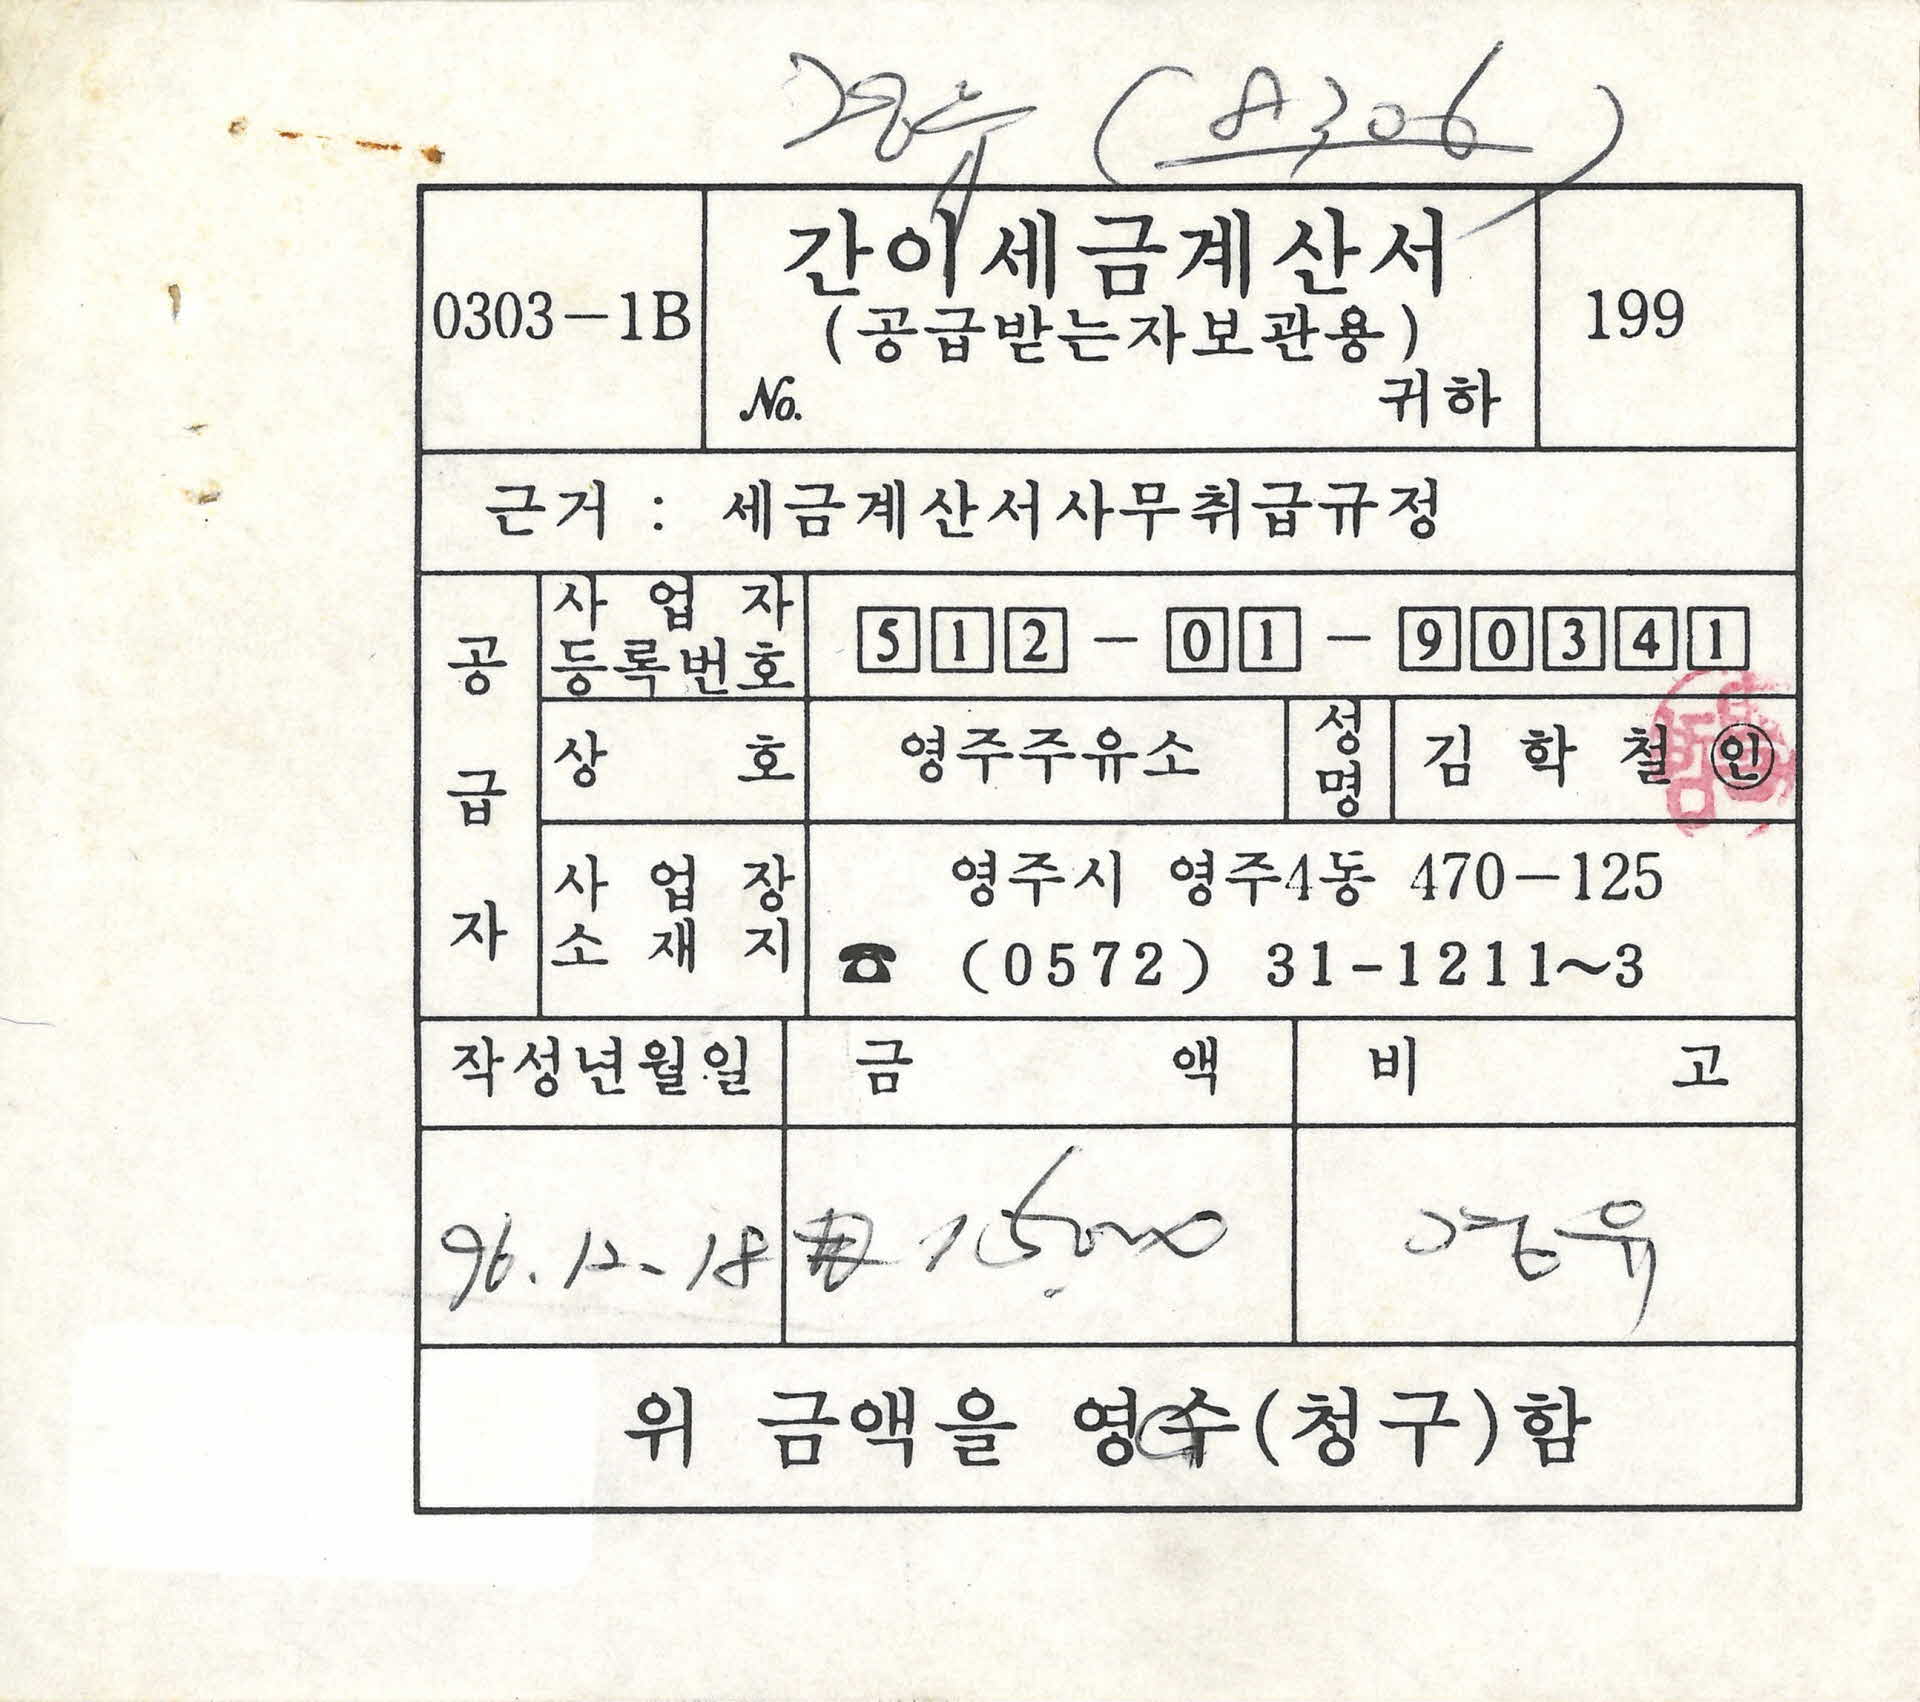 경유 (8306)
0303-1B
간이세금계산서
(공급받는자보관용)
No. 귀하
199
근거 : 세금계산서사무취급규정
공급자
사업자
등록번호
512-01-90341
상호
영주주유소
성명
김학철 ㊞
사업장
소재지
영주시 영주4동 470-125
☎ (0572) 31-1211~3
작성년월일 금액 비고
96.12.18 15000 경유
위 금액을 영수(청구)함